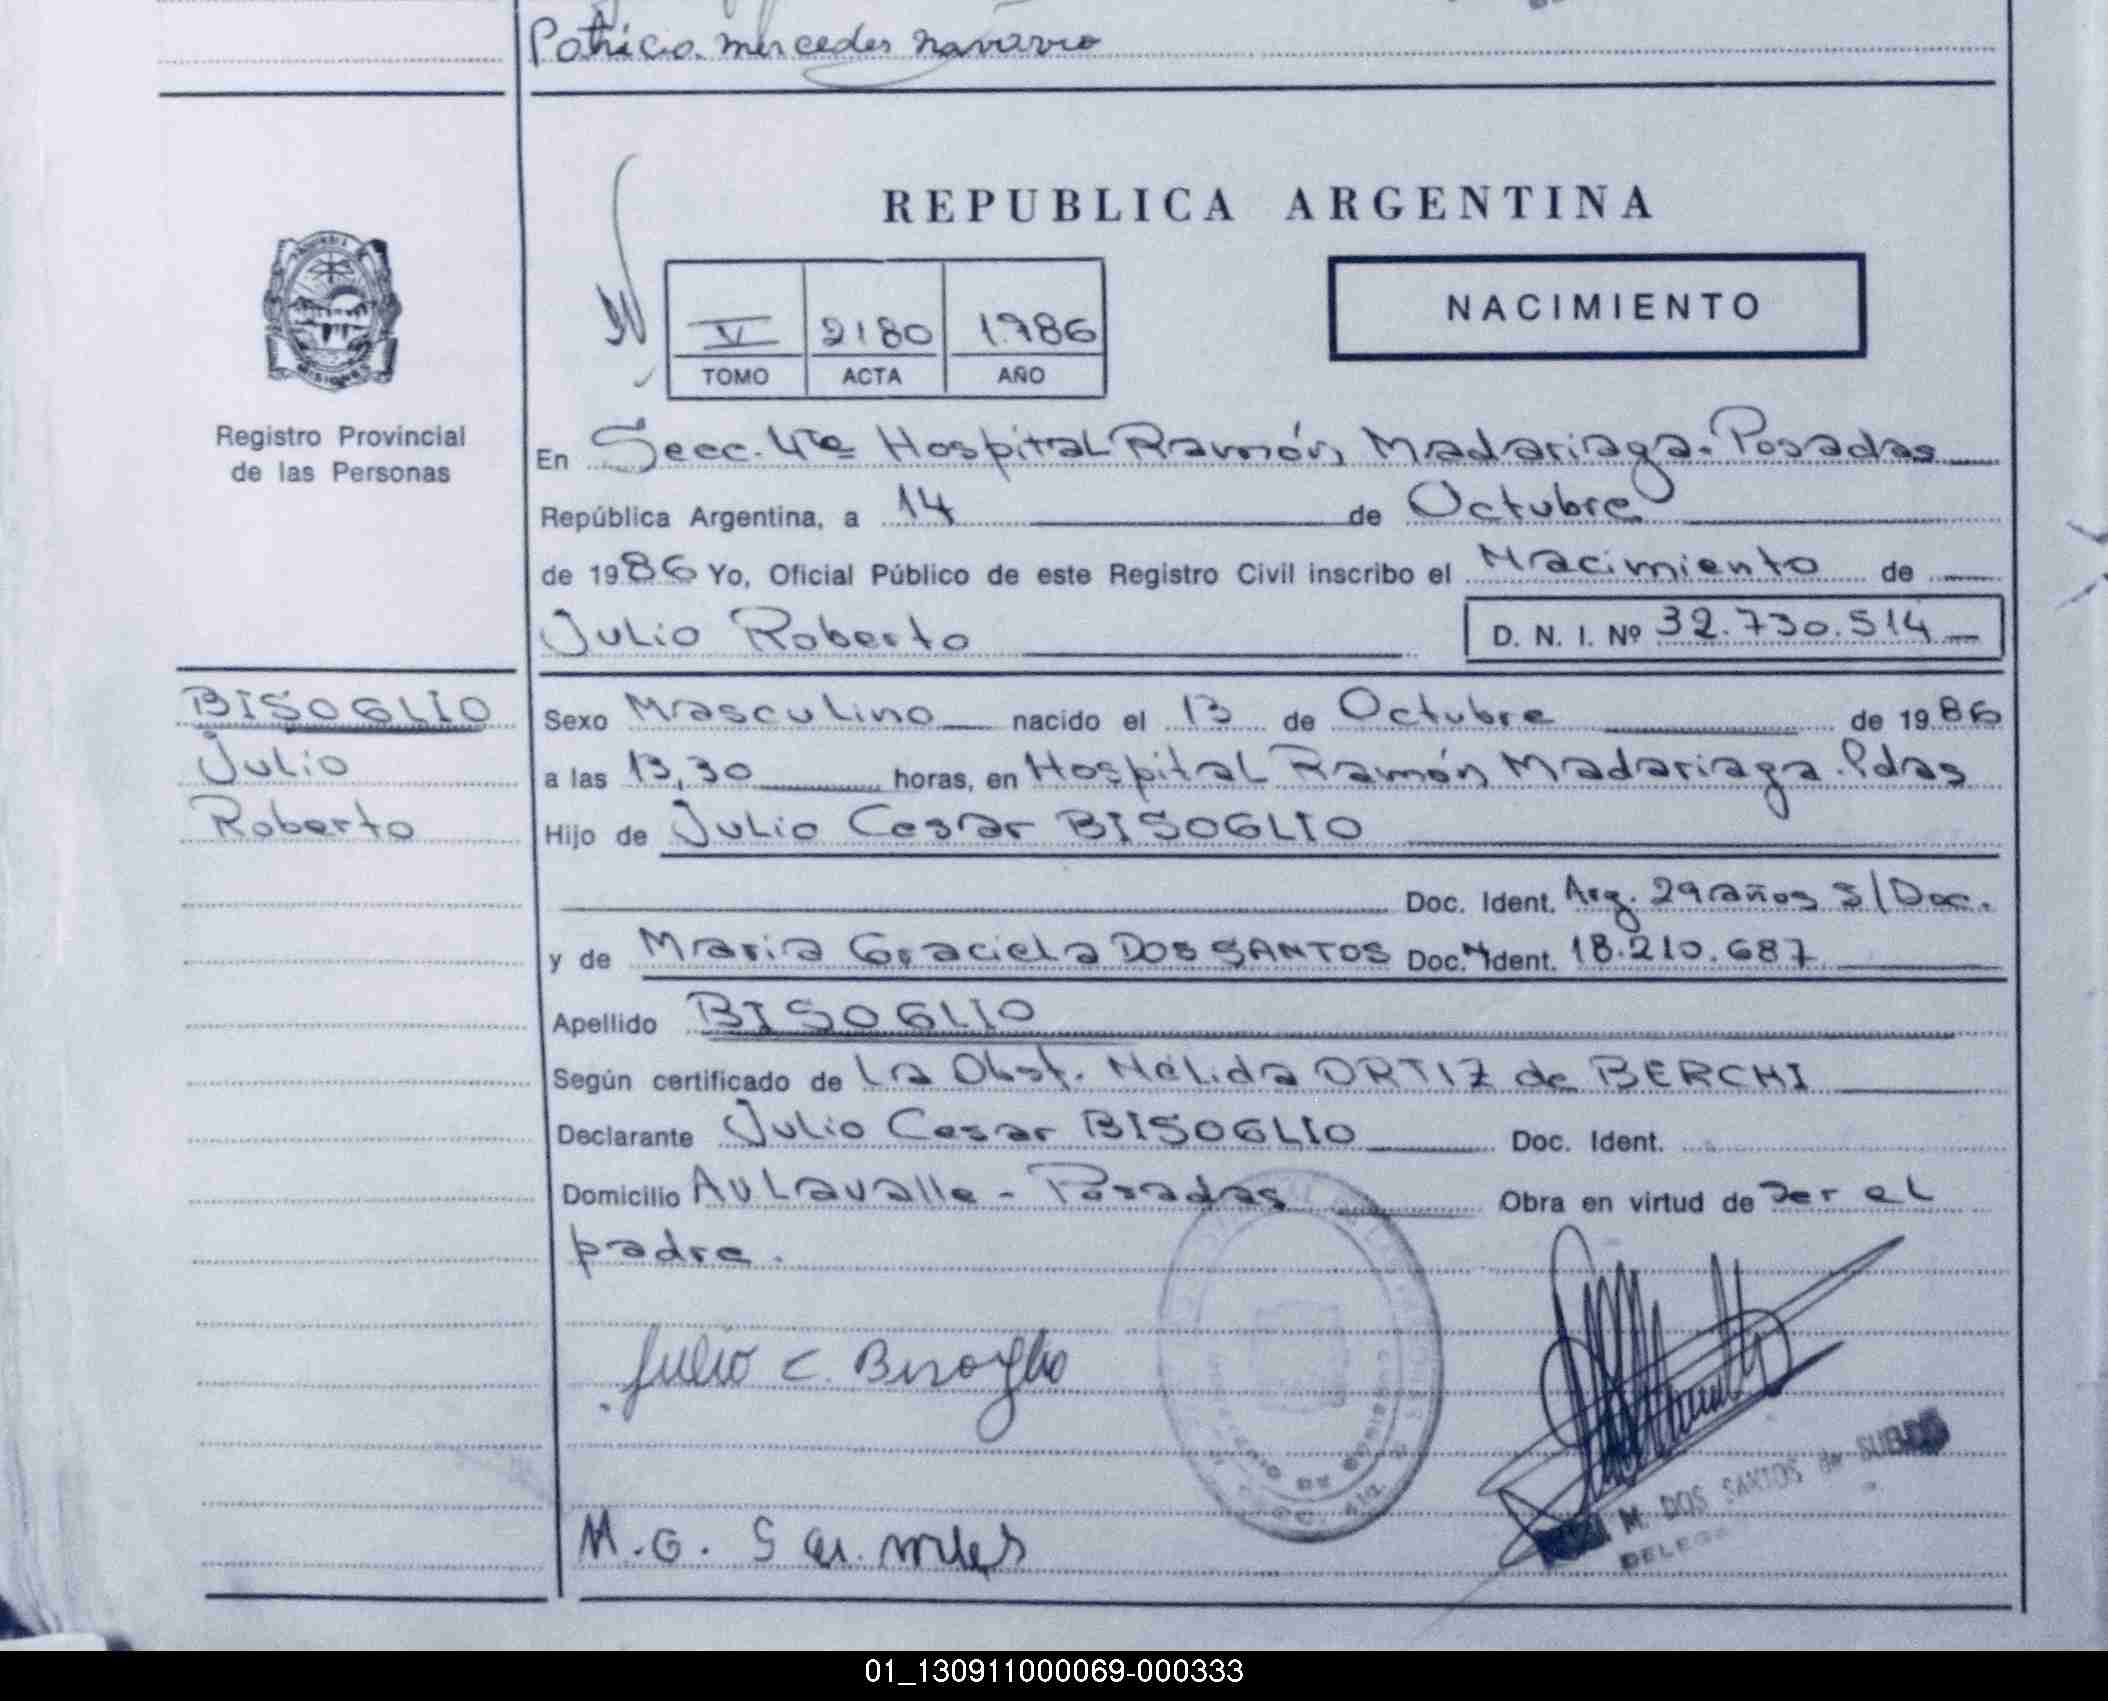 Patricia mercedes navarro
REPUBLICA ARGENTINA
V 2180 1.986
TOMO ACTA AÑO
NACIMIENTO
MISIONES
Registro Provincial
de las Personas
En Secc. 4ta Hospital Ramón Madariaga. Posadas
República Argentina, a 14 de Octubre
de 1986 Yo, Oficial Público de este Registro Civil inscribo el Nacimiento de
Julio Roberto D. N. I. Nº 32.730.514
BISOGLIO
Julio
Roberto
Sexo Masculino nacido el 13 de Octubre de 1986
a las 13,30 horas, en Hospital Ramón Madariaga. Pdas
Hijo de Julio Cesar BISOGLIO
Doc. Ident. Arg. 29 años s/Doc.
y de Maria Graciela DOS SANTOS Doc. Ident. 18.210.687
Apellido BISOGLIO
Según certificado de La Obst. Nélida ORTIZ de BERCHI
Declarante Julio Cesar BISOGLIO Doc. Ident.
Domicilio Av Lavalle - Posadas Obra en virtud de ser el
padre.
Julio C. Bisoglio
M. DOS SANTOS de
M. G.
01_130911000069-000333